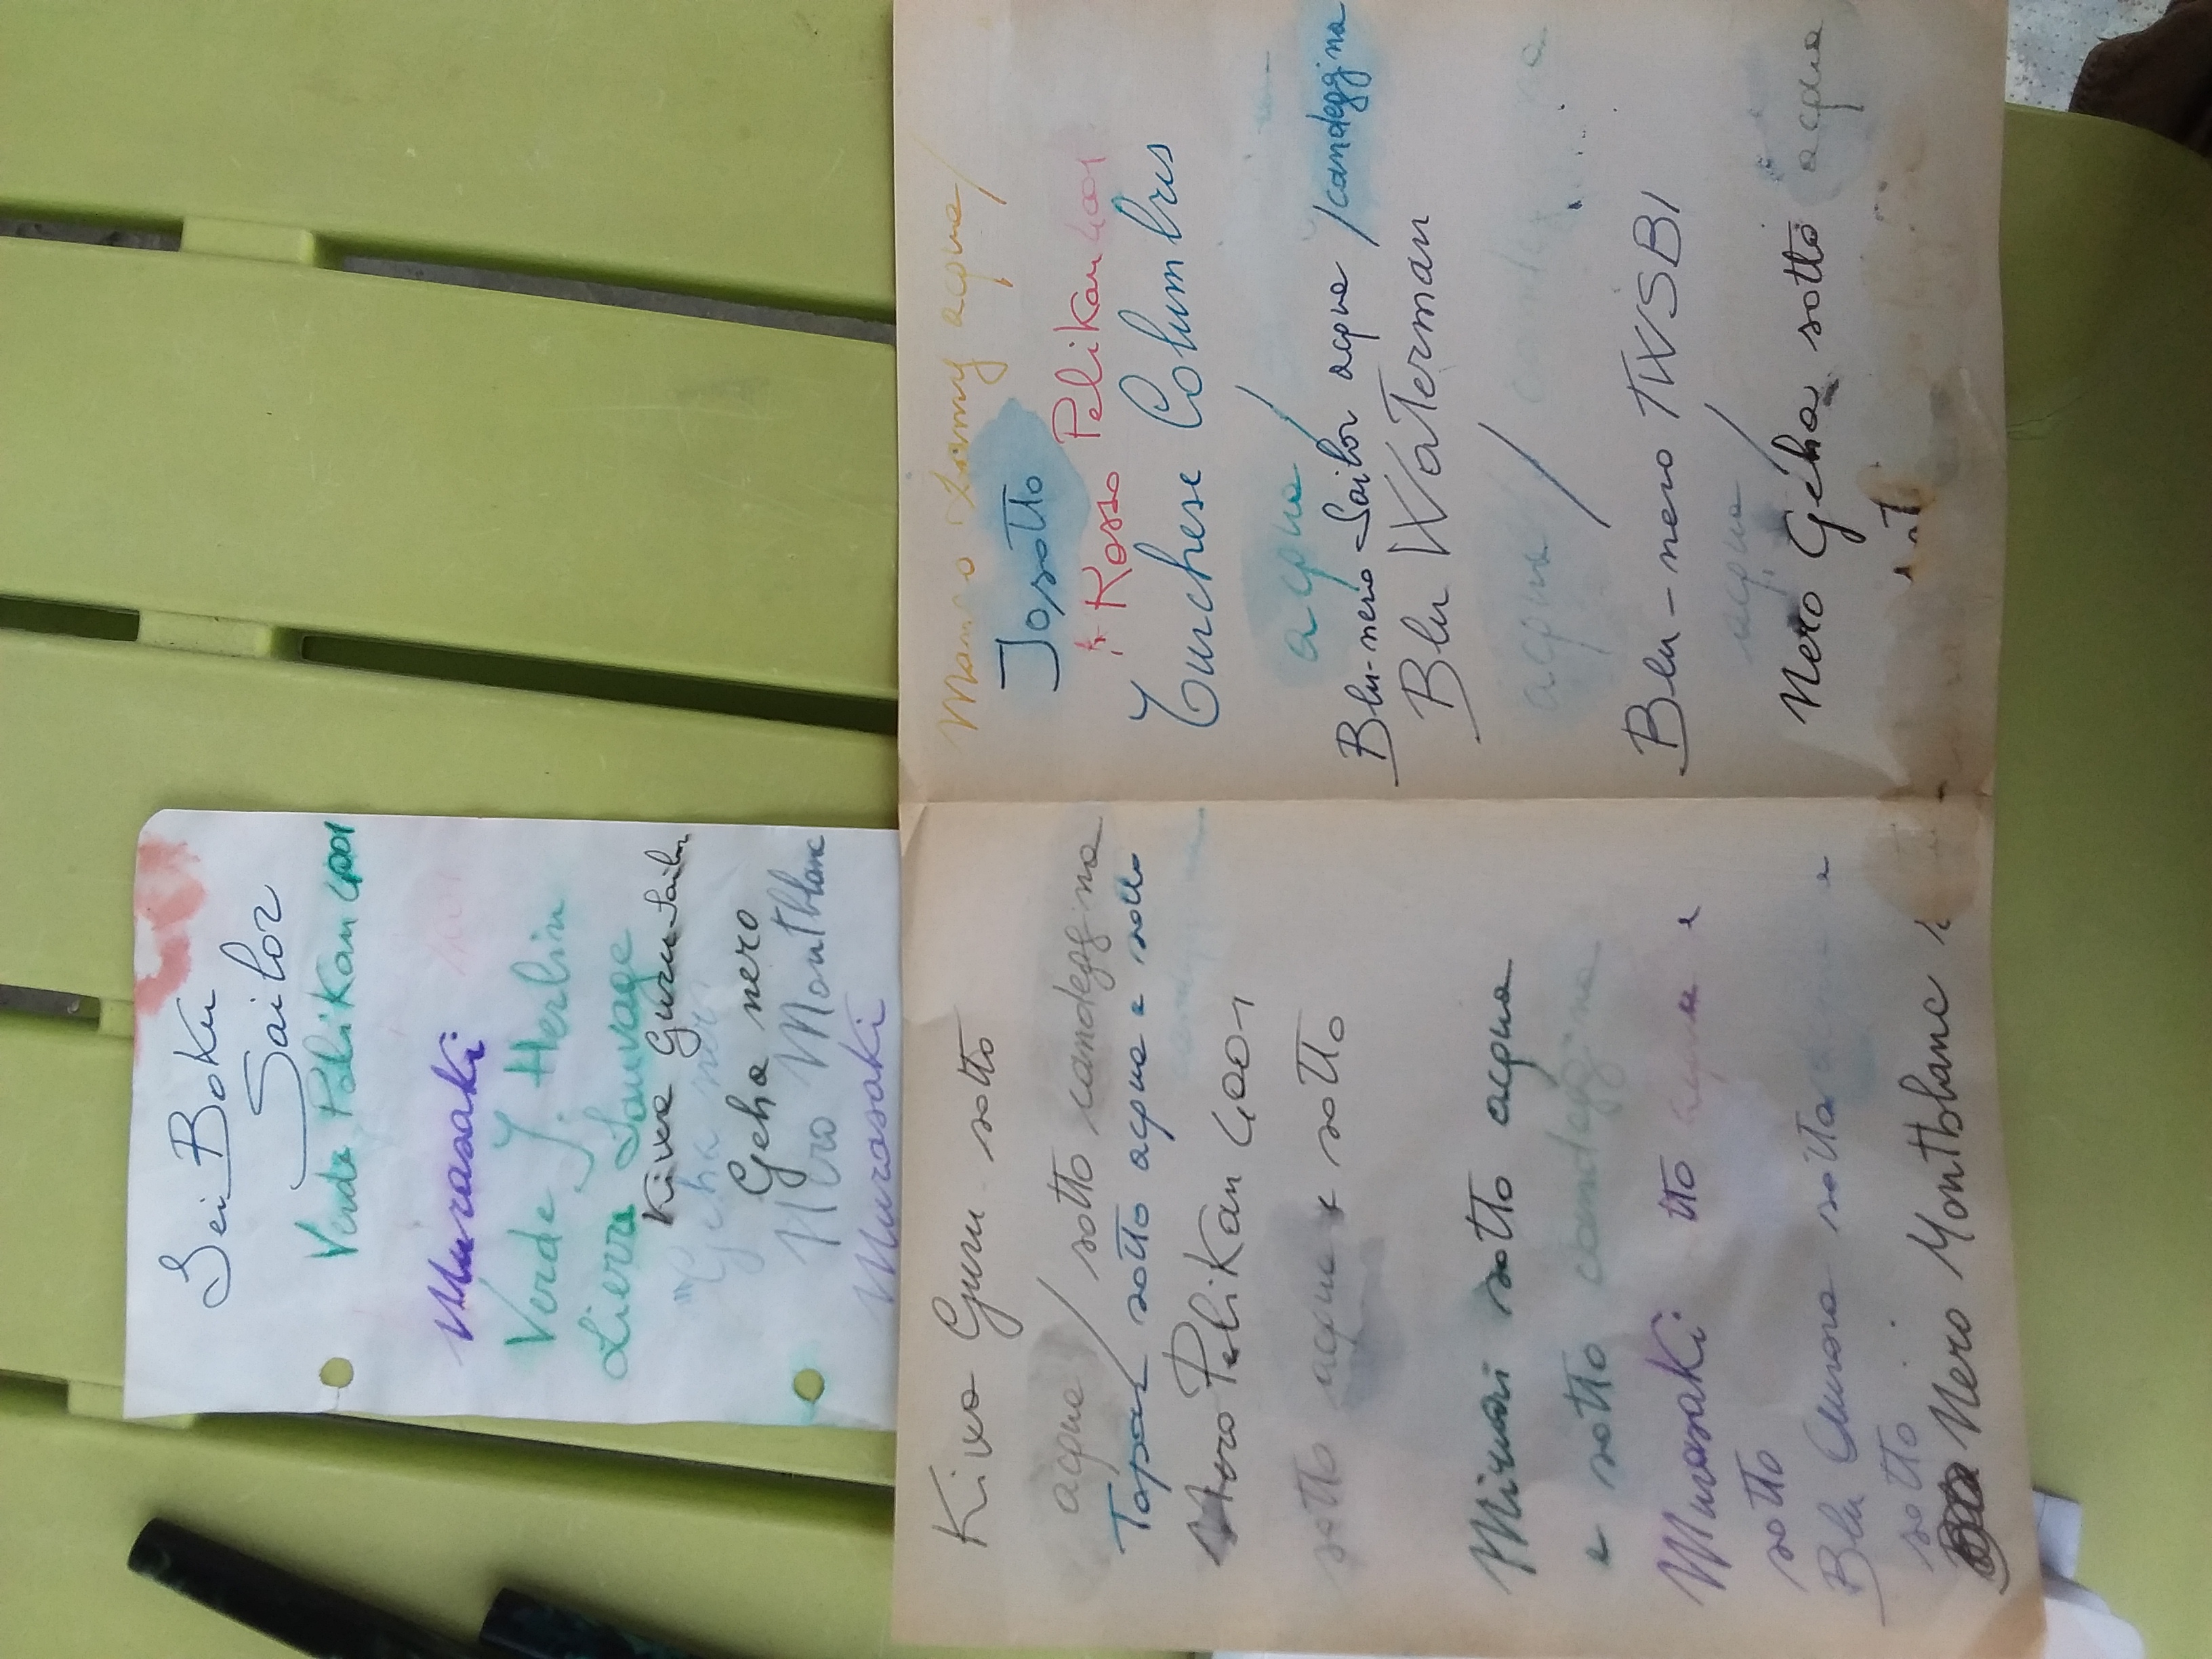 Sei Boku
Sailor
Verde Pelikan 4001
Murasaki
Verde J. Herbin
Lierre Sauvage
Kiwa Guro Sailor
Geha nero
Geha nero
Nero Montblanc
Murasaki
Kiwa Guru sotto
acqua / sotto candeggina
Topaz sotto acqua e sotto
Nero Pelikan 4001
sotto acqua e sotto
sotto acqua
e sotto candeggina
Murasaki tto acqua e
sotto
Blu Aurora sotto acqua e
sotto
Nero Montblanc
acqua /
sotto
Rosso Pelikan 4001
Turchese Columbus
acqua /
Blu-nero Sailor acqua / candeggina
Blu Waterman
acqua /
Blu-nero TWSBI
acqua /
Nero Geha sotto acqua